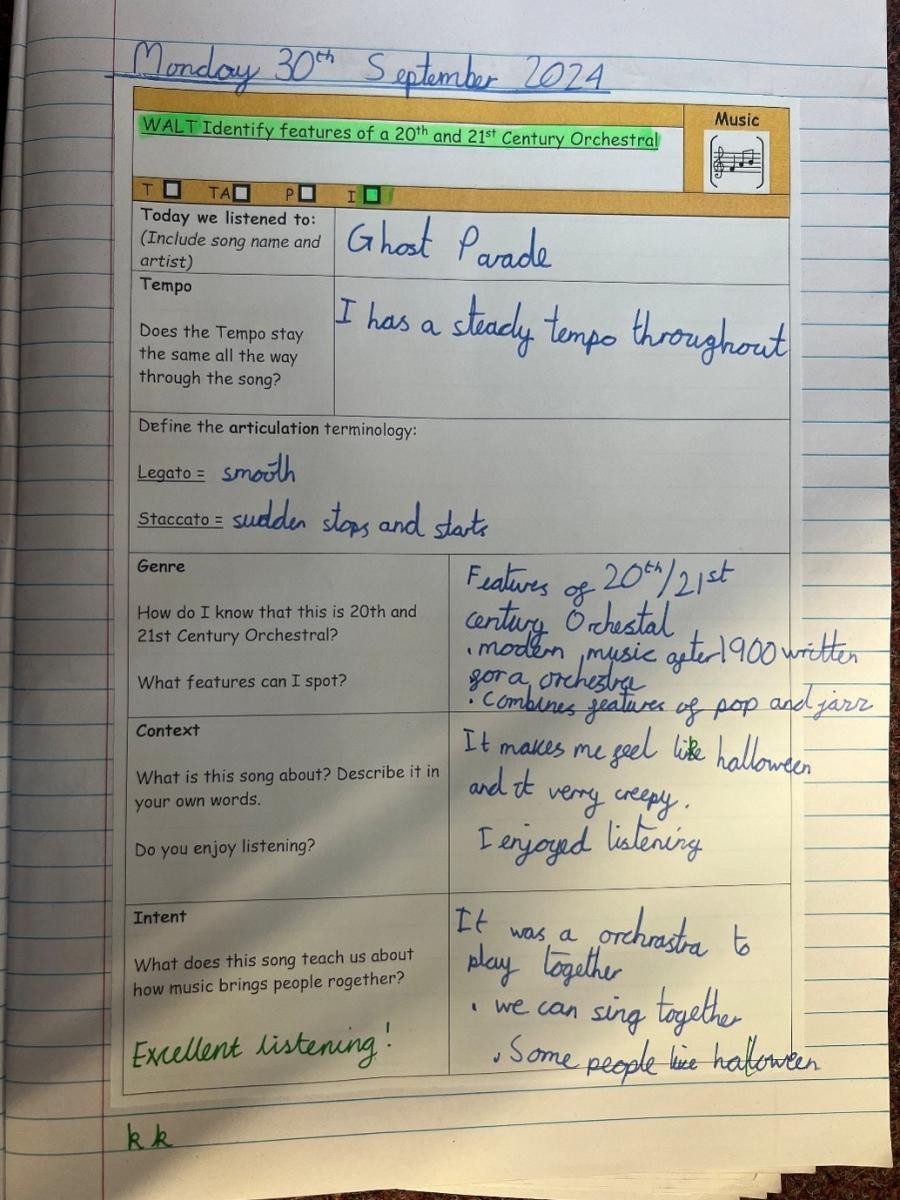 Monday 30th September 2024
Music
WALT Identify features of a 20th and 21st Century Orchestral
T TA P I
Today we listened to:
(Include song name and
artist)
Ghost Parade
Tempo
Does the Tempo stay
the same all the way
through the song?
I has a steady tempo throughout
Define the articulation terminology:
Legato = smooth
Staccato = sudden stops and starts
Genre
How do I know that this is 20th and
21st Century Orchestral?
What features can I spot?
Features of 20th/21st
century Orchestal
. modern music after 1900 written
for a orchestra
. Combines features of pop and jazz
Context
What is this song about? Describe it in
your own words.
Do you enjoy listening?
It makes me feel like halloween
and it verry creepy.
I enjoyed listening
Intent
What does this song teach us about
how music brings people rogether?
It was a orchrastra to
play together
. we can sing together
. Some people like halloween
Excellent listening!
k k